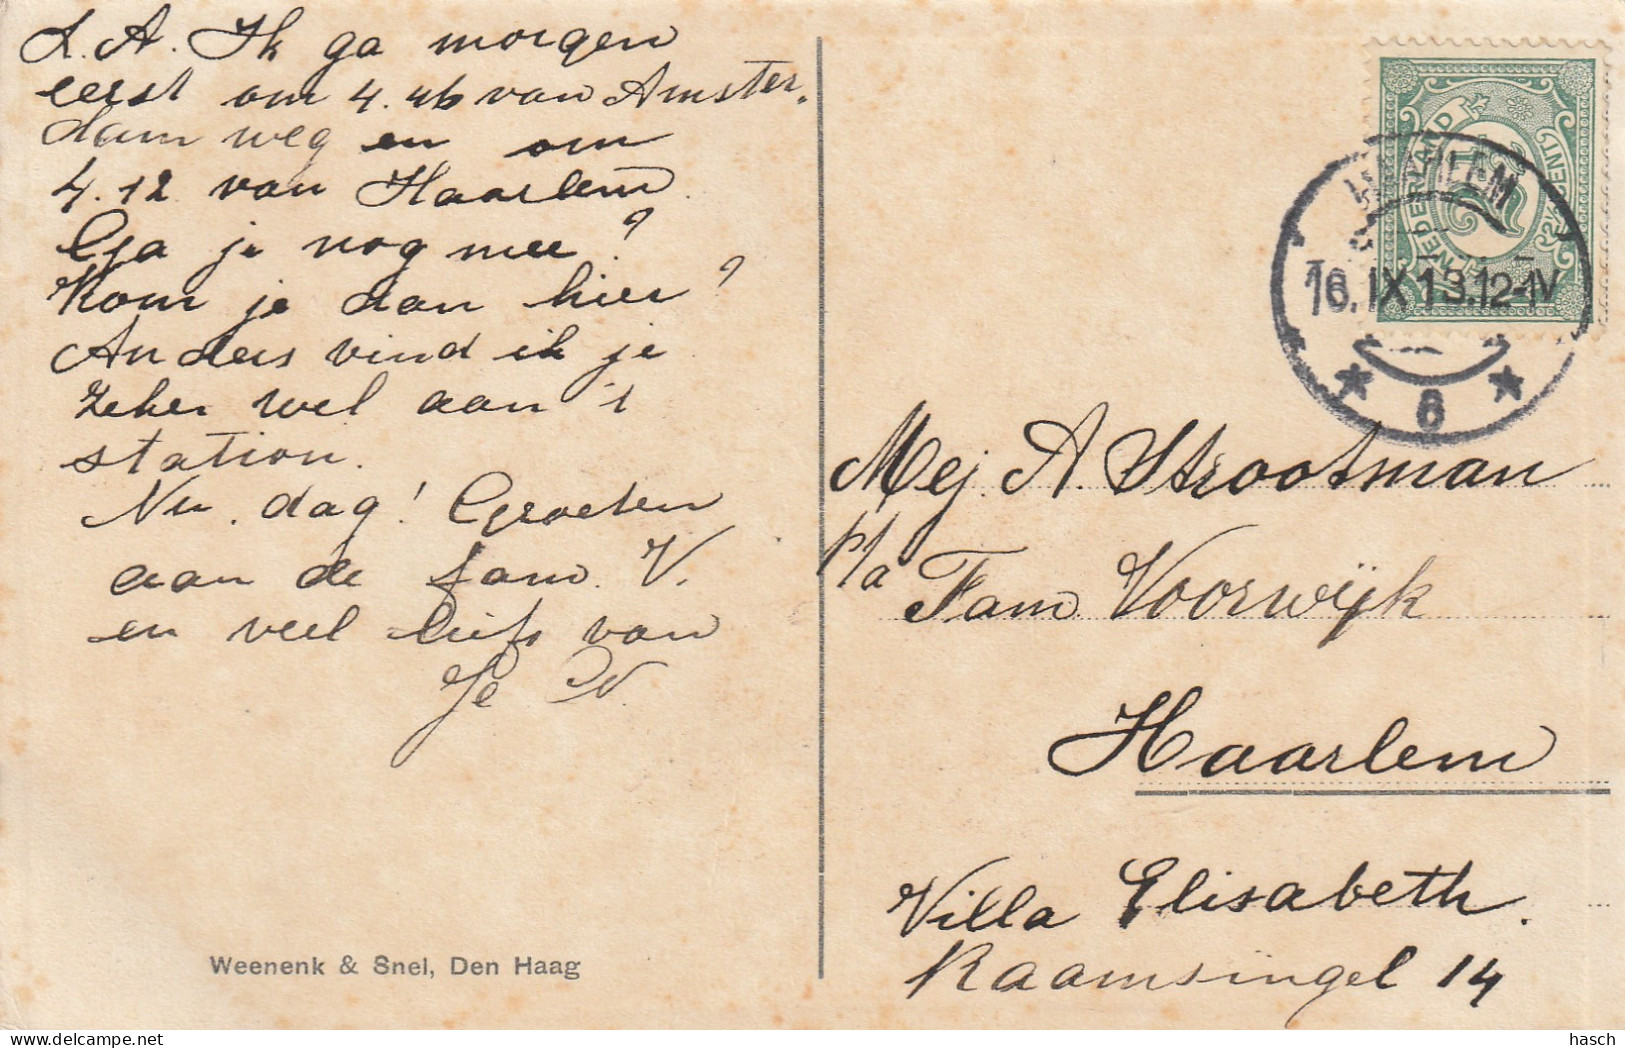 L. A. Ik ga morgen
eerst om 4.46 van Amster-
dam weg en om
4.12 van Haarlem.
Ga je nog mee?
Kom je dan hier?
Anders vind ik je
zeker wel aan 't
station.
Nu dag! Groeten
aan de fam. V.
en veel liefs van
Je N.
Weenenk & Snel, Den Haag
NEDERLAND
2½ CENT
HAARLEM
16.IX 13.12-1V
8
Mej. A. Strootman
p/a Fam. Voorwijk
Haarlem
Villa Elisabeth.
Raamsingel 14
hasch